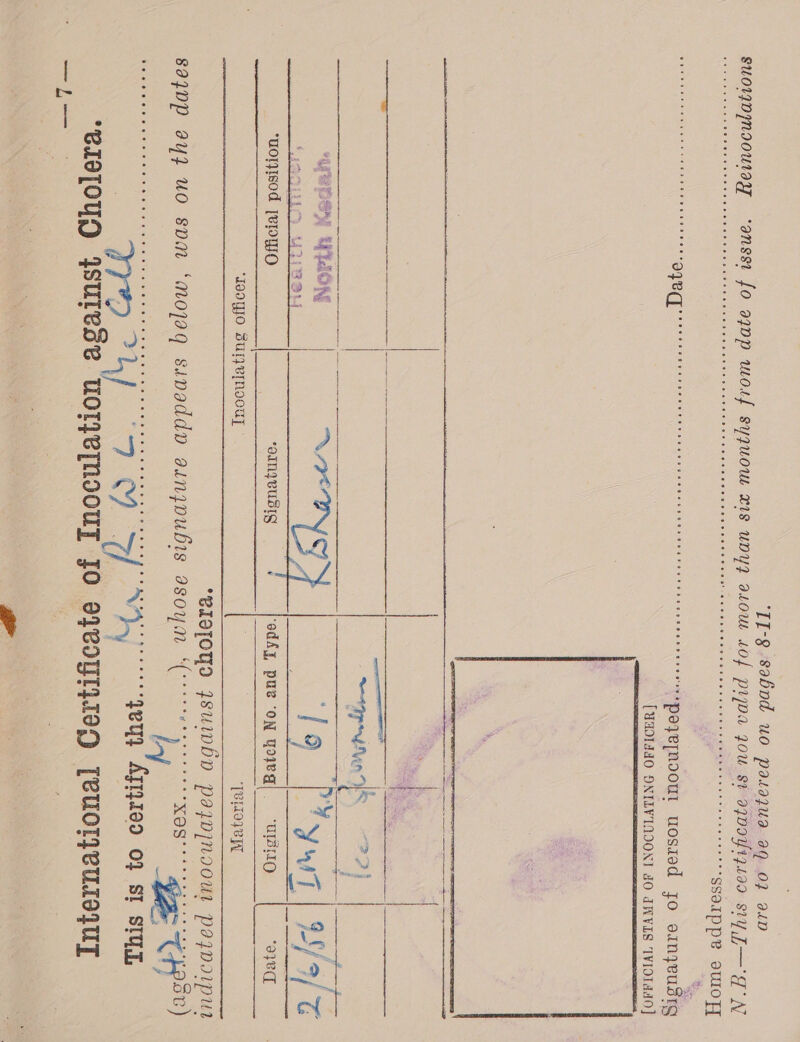 International Certificate of Inoculation against Cholera.
This is to certify that Mr. R W L. Mc Call
(age 42 sex M), whose signature appears below, was on the dates
indicated inoculated against cholera.
Material. Inoculating officer.
Date. Origin. Batch No. and Type. Signature. Official position.
2/6/56 IMR 61. Health Officer,
North Kedah.
1cc
[OFFICIAL STAMP OF INOCULATING OFFICER]
Signature of person inoculated Date
Home address
N.B.—This certificate is not valid for more than six months from date of issue. Reinoculations
are to be entered on pages 8-11.
—7—